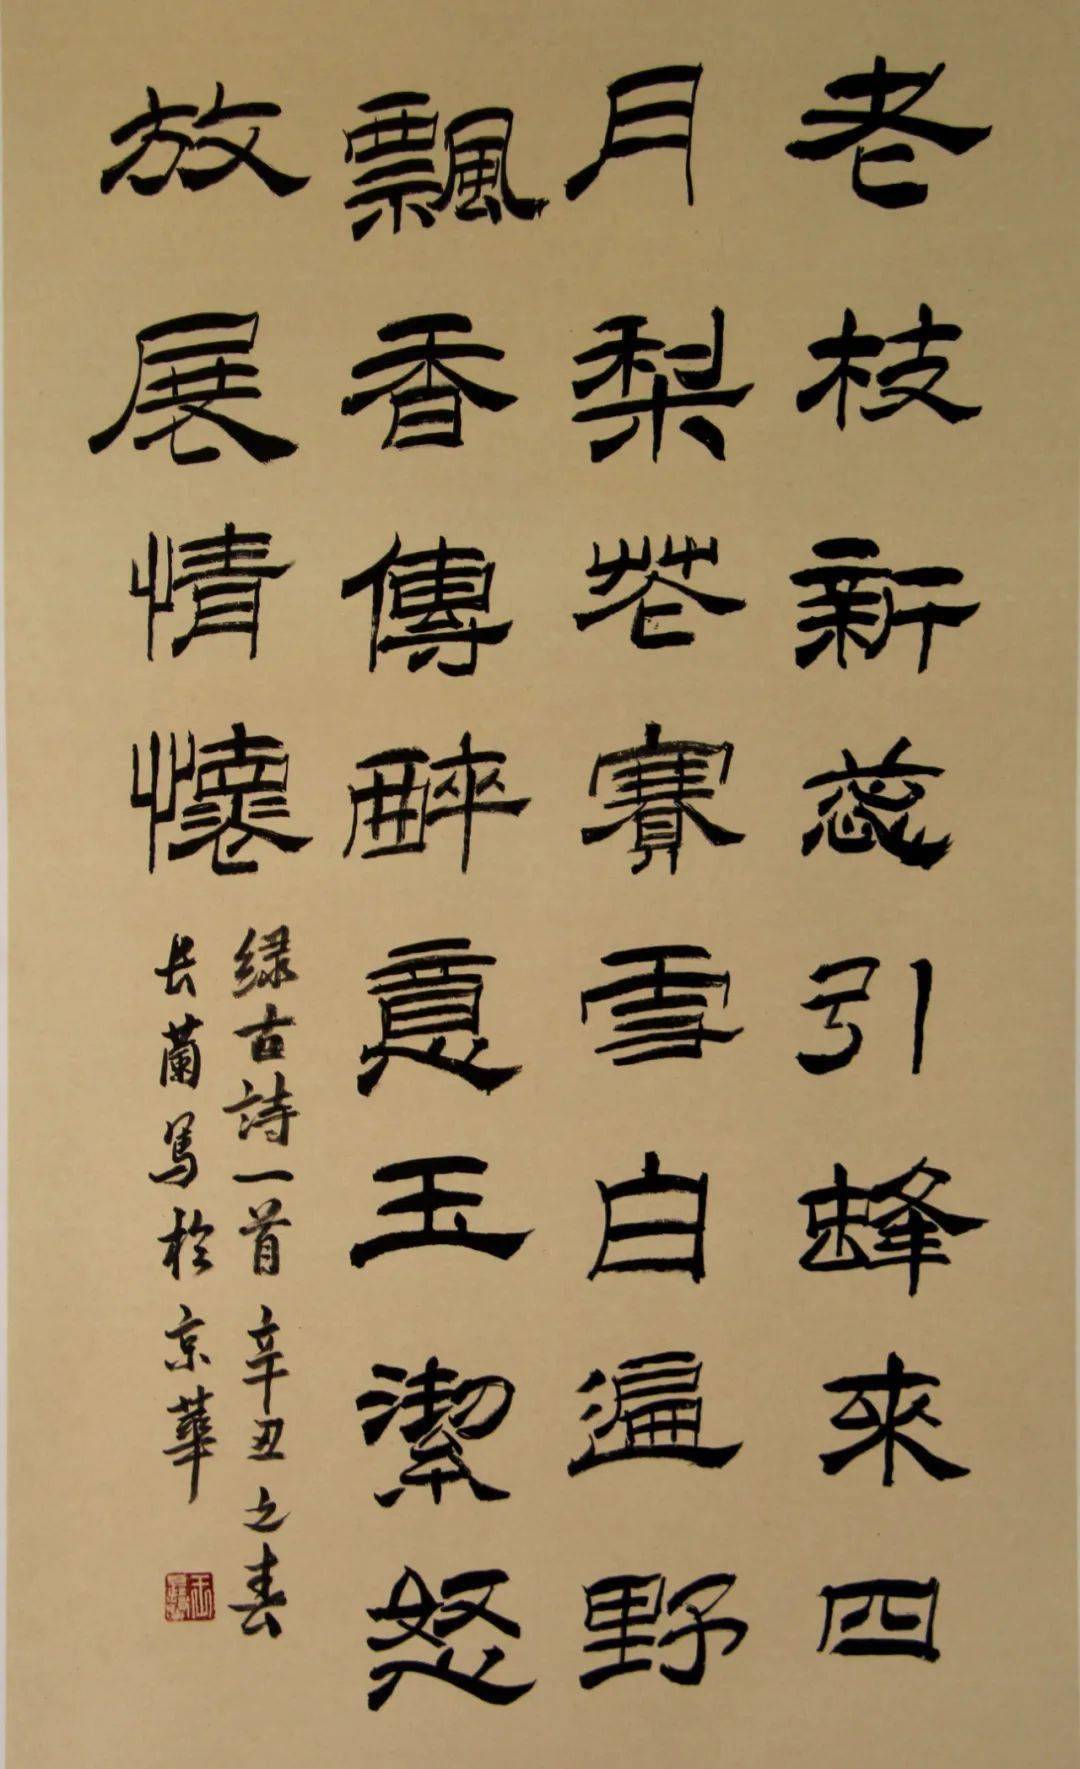 老枝新蕊引蜂來四
月梨花賽雪白遍野
飄香傳醉意玉潔怒
放展情懷
绿古詩一首辛丑之春
長蘭寫於京華